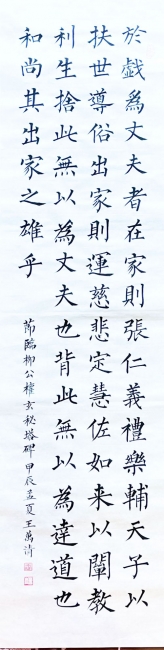 於戯為丈夫者在家則張仁義禮樂輔天子以
扶世導俗出家則運慈悲定慧佐如来以闡教
利生捨此無以為丈夫也背此無以為達道也
和尚其出家之雄乎
節臨柳公權玄秘塔碑甲辰孟夏王萬清